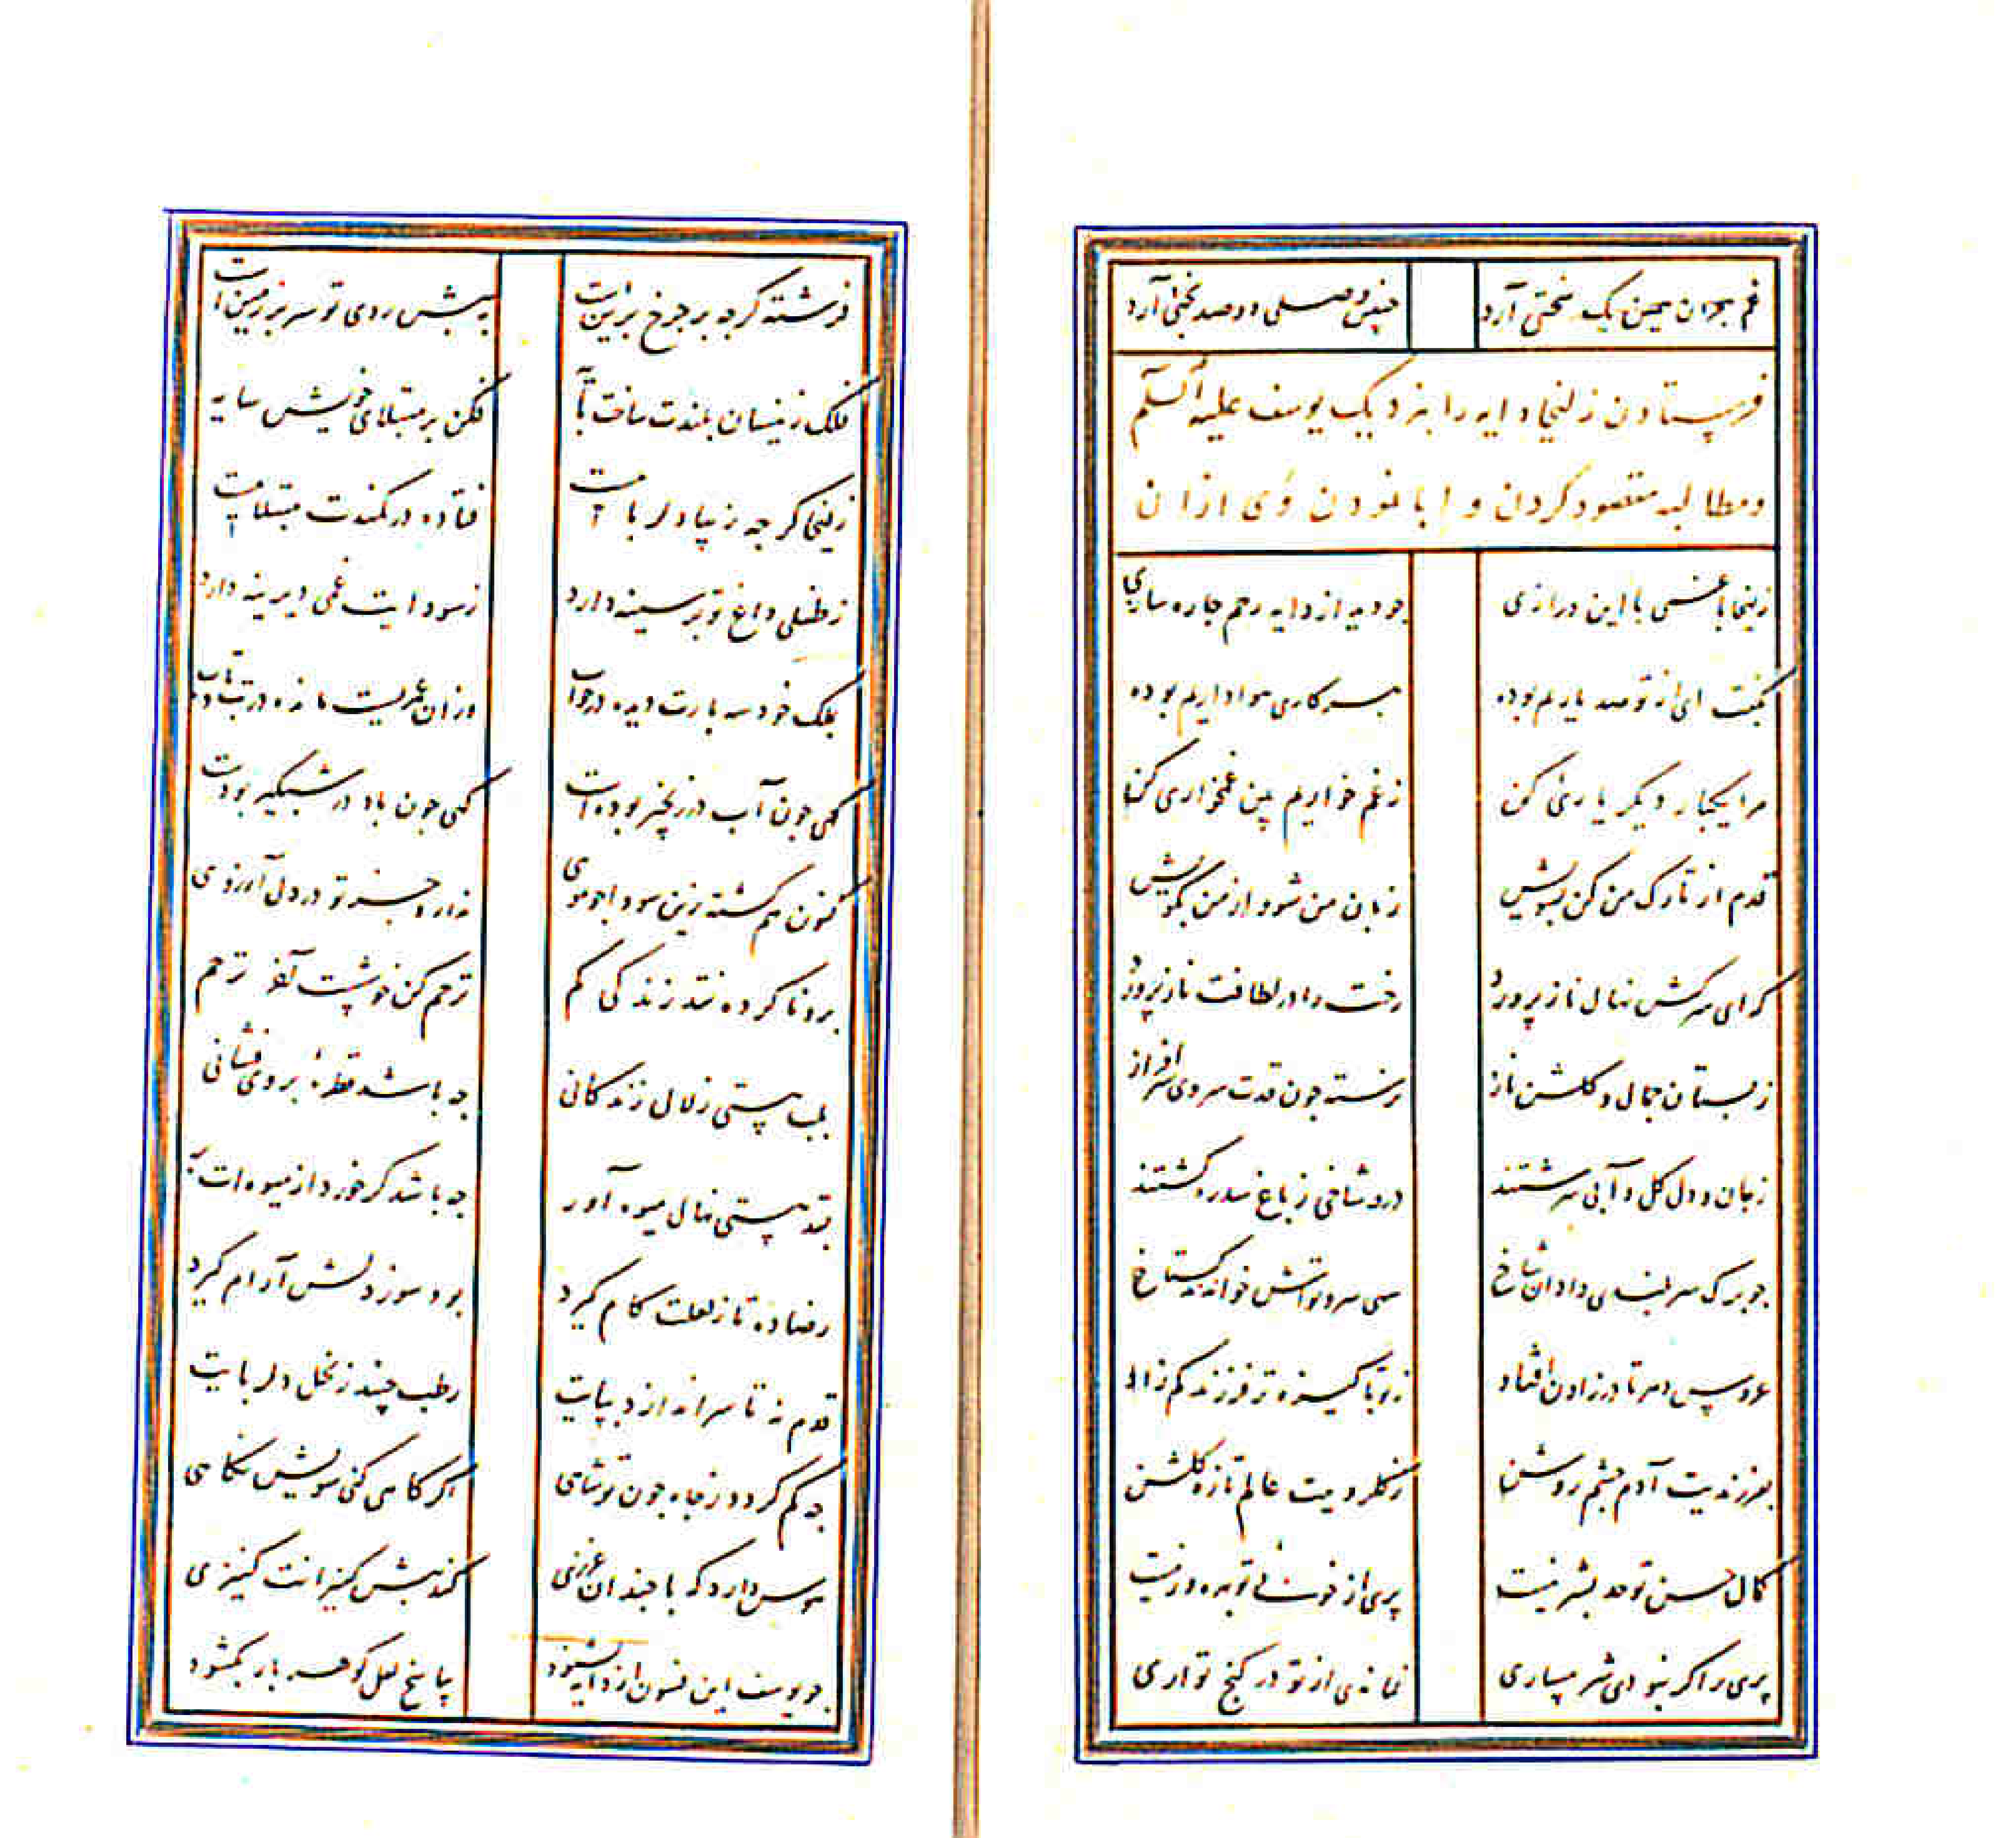 غم هجران همین یک سختی آرد چنین وصلی دو صد بدبختی آرد
فرستادن زلیخا دایه را بنزدیک یوسف علیه السلم
ومطالبه مقصود کردن و ابا نمودن وی ازان
زلیخا با غمی با این درازی جو دید از دایه رحم جاره سازی
بگفت ای از تو صد یاریم بوده بهر کاری هواداریم بوده
مرا یکبار دیگر یارئی کن زغم خواریم بین غمخواری کن
قدم از تارک من کن بسویش زبان من شو و از من بکویش
که ای سرکش نهال نازپرورد رخت را در لطافت نازپرورد
زبستان جمال و کلشن ناز نرسته جون قدت سروی سرافراز
زجان و دل کل و آبی سرشتند درو شاخی زباغ سدره کشتند
جو برک سربلندی داد آن شاخ سهی سرو تواش خواندند کستاخ
عروس دهر تا در زادن افتاد زتو پاکیزه تر فرزند کم زاد
بفرزندیت آدم جشم روشن زکلرویت عالم تازه کلشن
کمال حسن تو حد بشر نیست پری از خوبئی تو بهره ور نیست
پری را کر نبودی شرمساری نماندی از تو در کنج تواری
فرشته کرجه بر جرخ برین است به پیش روی تو سر بر زمین است
فلک زینسان بلندت ساخت پایه فکن بر مبتلای خویش سایه
زلیخا کرجه زیبا دلرباست فتاده در کمندت مبتلاست
زطفلی داغ تو بر سینه دارد زسودایت غمی دیرینه دارد
بملک خود سه بارت دیده در خواب وزان عمریست مانده در تب و تاب
کهی جون آب در زنجیر بوده است کهی جون باد در شبکیر بوده است
کنون هم کشته زین سودا جو موی ندارد جز تو در دل آرزوی
برو نا کرده نقد زندکی کم ترحم کن خوشست آخر ترحم
بلب هستی زلال زندکانی جه باشد قطرهٔ بروی فشانی
بقد هستی نهال میوه آور جه باشد کر خورد از میوه ات بر
رضا ده تا زلعلت کام کیرد برد سوز دلش آرام کیرد
قدم نه تا سر اندازد بپایت رطب جیند زنخل دلربایت
جه کم کردد زجاه جون تو شاهی اکر کاهی کنی سویش نکاهی
هوس دارد که با جندان عزیزی کند پیش کنیزانت کنیزی
جو یوسف این فسون از دایه بشنود پاسخ لعل کوهر بار بکشود